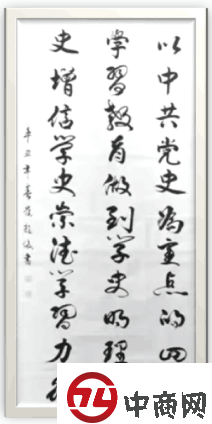 以中共党史为重点的四
学习教育做到学史明理
史增信学史崇德学习力行
辛丑年春茂
中商网